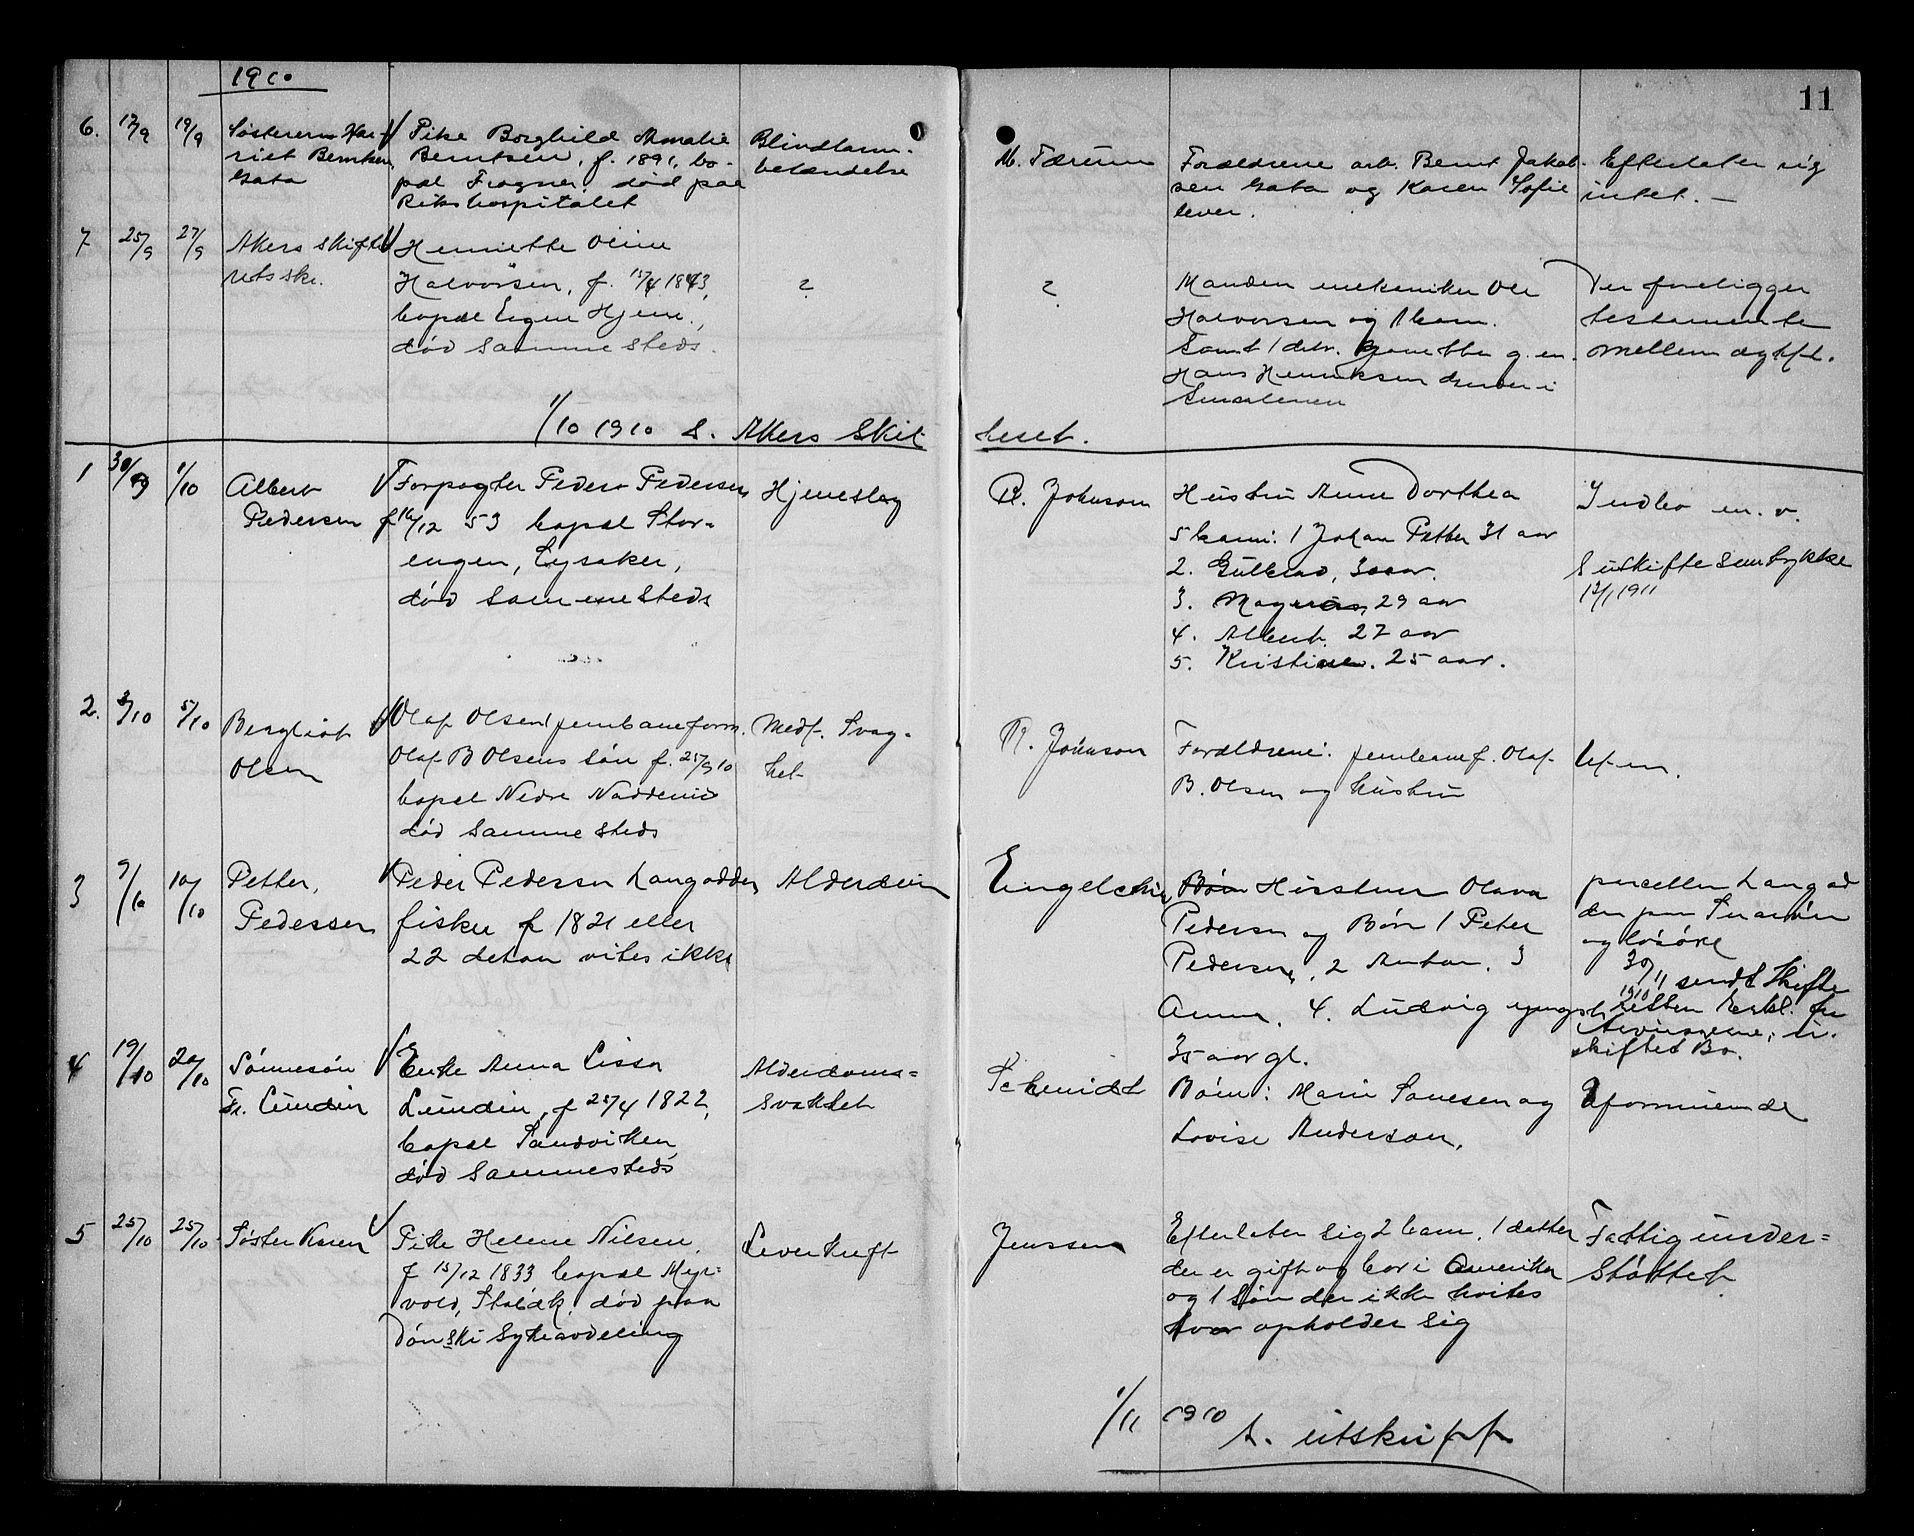 1910
11
6. 17/9 19/9
Søsteren Har-
riet Berntsen
Gata
Pike Borghild Amalie
Berntsen, f. 1891, bo-
pæl Frogner, død paa
Rikshospitalet
Blindtarm-
betændelse
M. Færum
Forældrene arb. Bernt Jakob-
sen Gata og Karen Sofie
lever.
Efterlater sig
intet. —
7 25/9 27/9
Akers skifte
rets skr.
Henriette Oline
Halvorsen, f. 15/4 1843,
bopæl Egen Hjem,
død sammesteds.
?
?
Manden mekaniker Ole
Halvorsen og 1 barn.
Samt 1 datr. g. m.
Hans Henriksen
Smaalenene
Der foreligger
testamente
mellem ægtf.
1/10 1910 S. Akers Skif
teret.
1 30/9 1/10
Albert
Pedersen
Forpagter Peder Pedersen
f 16/12 53 bopæl Stor-
engen, Lysaker,
død sammesteds
Hjerneslag
R. Johnson
Hustru Anne Dorthea
5 barn: 1 Johan Petter 31 aar
2. Gulbrand, 30 aar.
3. Magnus, 29 aar
4. Albert. 27 aar
5. Kristine. 25 aar.
Indbo m. v.
S uskifte samtykke
12/1 1911
2. 3/10 5/10
Bergliot
Olsen
Olaf Olsen jernbaneform.
Olaf B Olsens søn f. 25/9 10
bopæl Nedre Nadderud
død sammesteds
Medf. Svag-
het
R. Johnson
Forældrene: jernbanef. Olaf
B. Olsen og hustru
Uf-m.
3 9/10 10/10
Petter,
Pedersen
Peder Pedersen Langodden
fisker f 1821 eller
22 datoen vites ikke
Alderdom
Engelchi
Børn Husstruen Olava
Pedersen og Børn 1 Peter
Pedersen, 2 Anton. 3
Anna, 4. Ludvig yngst
35 aar gl.
parcellen Langod
den paa Snarøen
og løsøre
30/11 1910 sendt Skifte
retten Erkl. fra
Arvingerne, u.
skiftet Bo.
4 19/10 20/10
Sønnesøn
Fr. Lundin
Enke Anna Lissa
Lundin, f 25/4 1822,
bopæl Sandviken
død Sammesteds
Alderdoms=
svakhet
Schmidt
Børn: Marie Sanesen og
Lovise Anderson,
Uformuende
5 25/10 25/10
Søster Karen
Pike Helene Nilsen,
f 15/12 1833 bopæl Myr-
vold, Stabæk, død paa
Dønski Sykeavdeling
Leverkreft
Jenssen
Efterlater sig 2 barn, 1 datter
der er gift og bor i Amerika
og 1 søn der ikke kvites
hvor opholder sig
Fattigunder=
støttet.
1/11 1910 S. utskrift